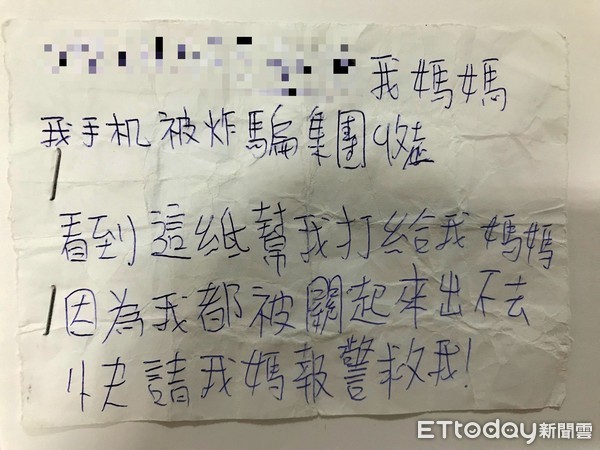 我媽媽
我手机被炸騙集團收走
看到這紙幫我打給我媽媽
因為我都被關起來出不去
快請我媽報警救我!
ETtoday新聞雲